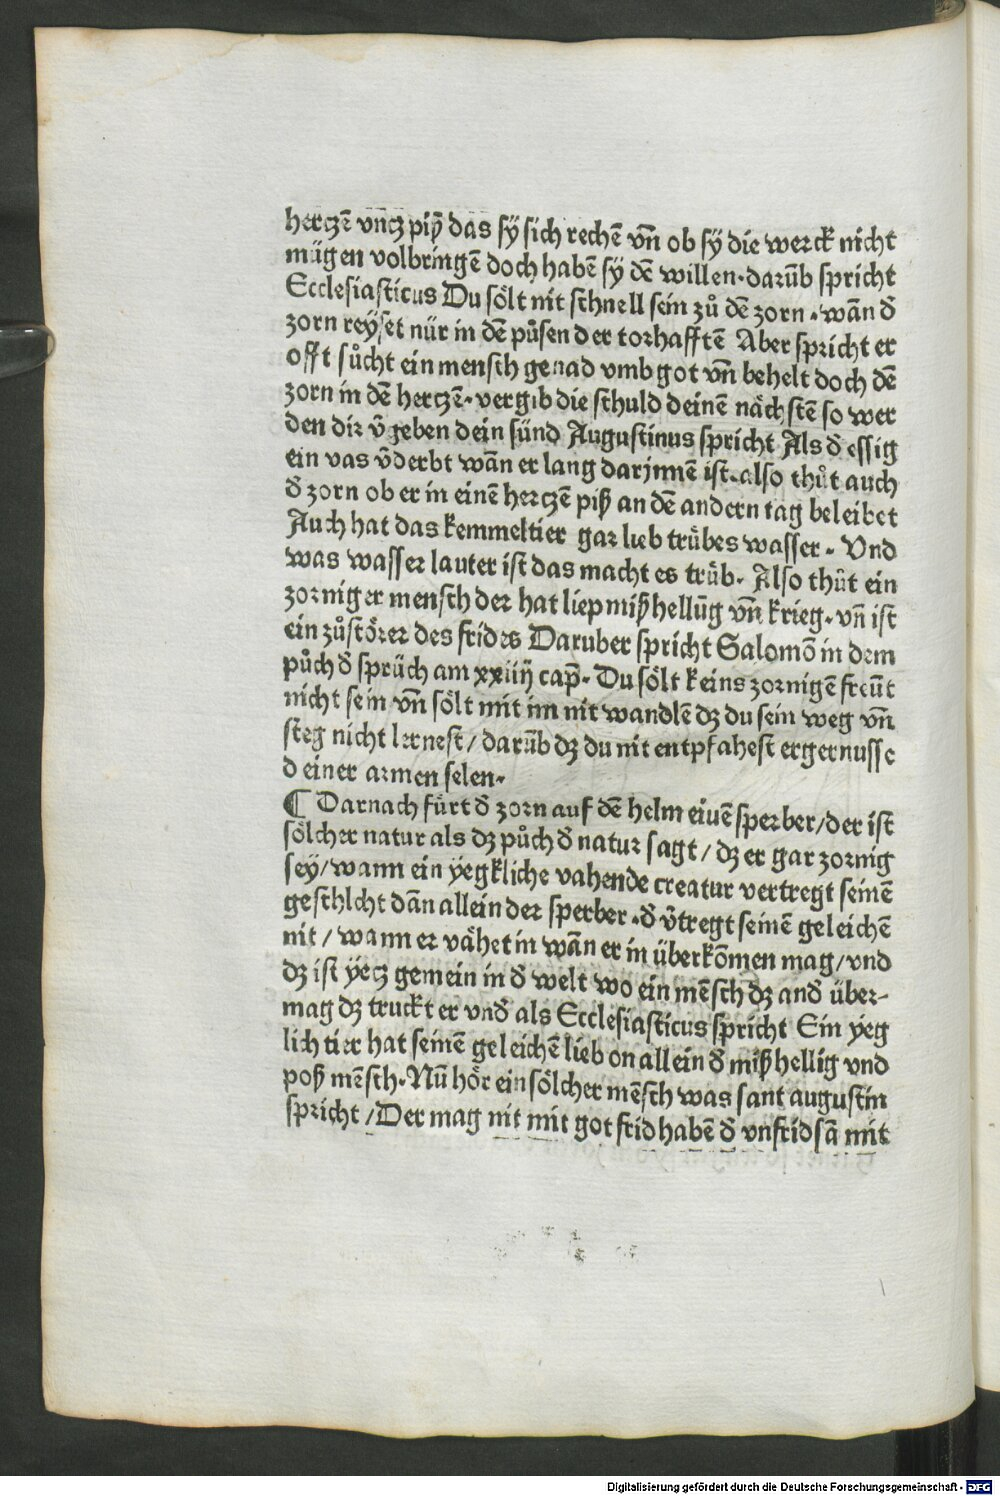 hertzē vntz piß das sÿ sich rechē vn̄ ob sÿ die werck nicht
mügen volbringē doch habē sÿ dē willen · darūb spricht
Ecclesiasticus Du sölt nit schnell sein zů dē zorn · wān d̄
zorn reÿset nür in dē půsen der torhafftē Aber spricht er
offt sůcht ein mensch genad vmb got vn̄ behelt doch dē
zorn in dē hertzē · vergib die schuld deinē nächstē so wer
den dir v̄geben dein sünd Augustinus spricht Als d̄ essig
ein vas v̄derbt wān er lang darjnnē ist · also thůt auch
d̄ zorn ob er in einē hertzē piß an dē andern tag beleibet
Auch hat das kemmeltier gar lieb trübes wasser · Vnd
was wasser lauter ist das macht es trüb · Also thůt ein
zorniger mensch der hat liep mißhellūg vn̄ krieg · vn̄ ist
ein zůstörer des frides Daruber spricht Salomō in dem
půch d̄ sprüch am xxiiij cap̄ · Du sölt keins zornigē freūt
nicht sein vn̄ sölt mit im nit wandlē dz du sein weg vn̄
steg nicht lernest / darūb dz du nit entpfahest ergernusse
deiner armen selen ·
¶ Darnach fürt d̄ zorn auf dē helm einē sperber / der ist
sölcher natur als dz půch d̄ natur sagt / dz er gar zornig
sey / wann ein yegkliche vahende creatur vertregt seinē
geschlcht dān allein der sperber · d̄ v̄tregt seinē geleichē
nit / wann er vähet in wān er in überkōmen mag / vnd
dz ist ÿetz gemein in d̄ welt wo ein mēsch dz and̄ über-
mag dz truckt er vnd̄ als Ecclesiasticus spricht Ein ÿeg
lich tier hat seinē geleichē lieb on allein d̄ mißhellig vnd
poß mēsch · Nū hör ein sölcher mēsch was sant augustin
spricht / Der mag nit mit got frid habē d̄ vnfridsā mit
Digitalisierung gefördert durch die Deutsche Forschungsgemeinschaft - DFG